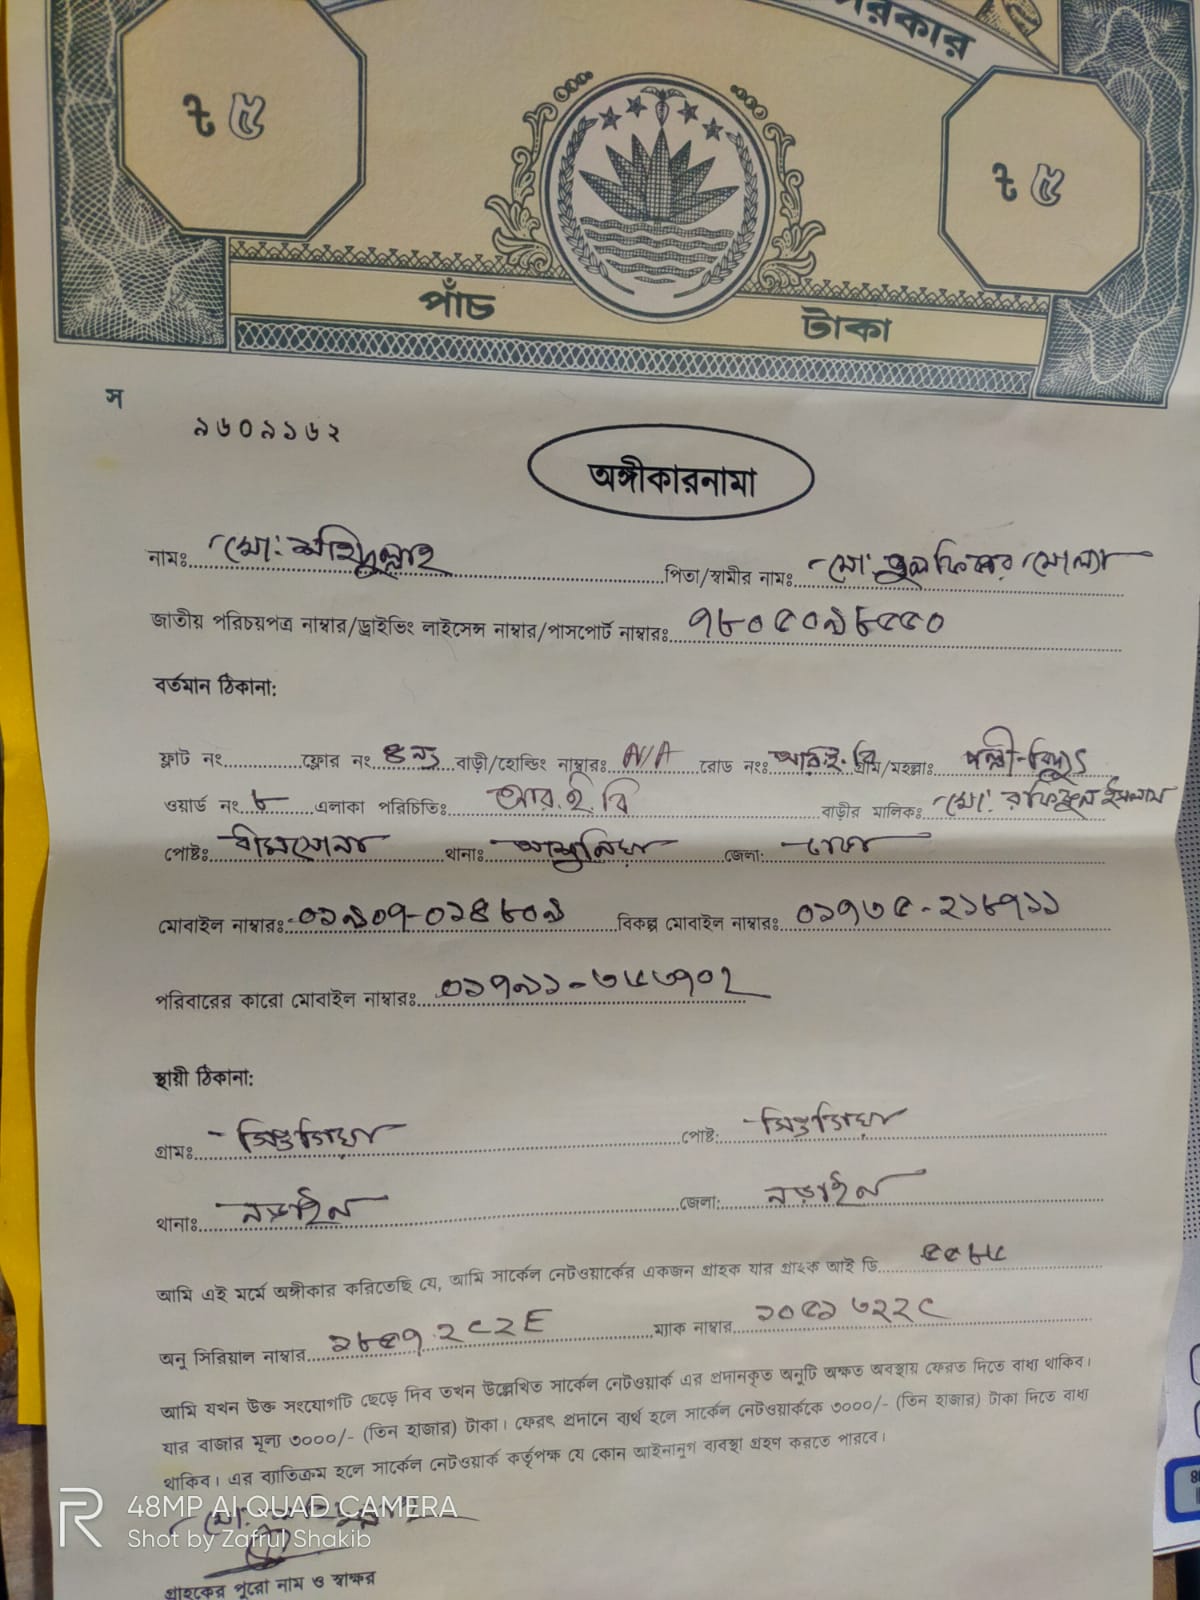 রকার
৳ ৫
৳ ৫
পাঁচ টাকা
স
৯৬০৯১৬২
অঙ্গীকারনামা
নামঃ মো: শহিদুল্লাহ পিতা/স্বামীর নামঃ মো: মোল্যা
জাতীয় পরিচয়পত্র নাম্বার/ড্রাইভিং লাইসেন্স নাম্বার/পাসপোর্ট নাম্বারঃ ৭৮০৫০৯৮৫৫০
বর্তমান ঠিকানা:
ফ্লাট নং ফ্লোর নং বাড়ী/হোল্ডিং নাম্বারঃ N/A রোড নংঃ আর.ই.বি গ্রাম/মহল্লাঃ পল্লী-বিদ্যুৎ
ওয়ার্ড নং ৮ এলাকা পরিচিতিঃ আর.ই.বি বাড়ীর মালিকঃ মো: রফিকুল ইসলাম
পোষ্টঃ থানাঃ আশুলিয়া জেলা: ঢাকা
মোবাইল নাম্বারঃ ০১৯০৭-০১৪৮০৯ বিকল্প মোবাইল নাম্বারঃ ০১৭৩৫-২১৮৭১১
পরিবারের কারো মোবাইল নাম্বারঃ
স্থায়ী ঠিকানা:
গ্রামঃ সিঙ্গিয়া পোষ্ট: সিঙ্গিয়া
থানাঃ নড়াইল জেলা: নড়াইল
আমি এই মর্মে অঙ্গীকার করিতেছি যে, আমি সার্কেল নেটওয়ার্কের একজন গ্রাহক যার গ্রাহক আই ডি
অনু সিরিয়াল নাম্বার ম্যাক নাম্বার
আমি যখন উক্ত সংযোগটি ছেড়ে দিব তখন উল্লেখিত সার্কেল নেটওয়ার্ক এর প্রদানকৃত অনুটি অক্ষত অবস্থায় ফেরত দিতে বাধ্য থাকিব।
যার বাজার মূল্য ৩০০০/- (তিন হাজার) টাকা। ফেরৎ প্রদানে ব্যর্থ হলে সার্কেল নেটওয়ার্ককে ৩০০০/- (তিন হাজার) টাকা দিতে বাধ্য
থাকিব। এর ব্যাতিক্রম হলে সার্কেল নেটওয়ার্ক কর্তৃপক্ষ যে কোন আইনানুগ ব্যবস্থা গ্রহণ করতে পারবে।
48MP AI QUAD CAMERA
Shot by Zafrul Shakib
গ্রাহকের পুরো নাম ও স্বাক্ষর